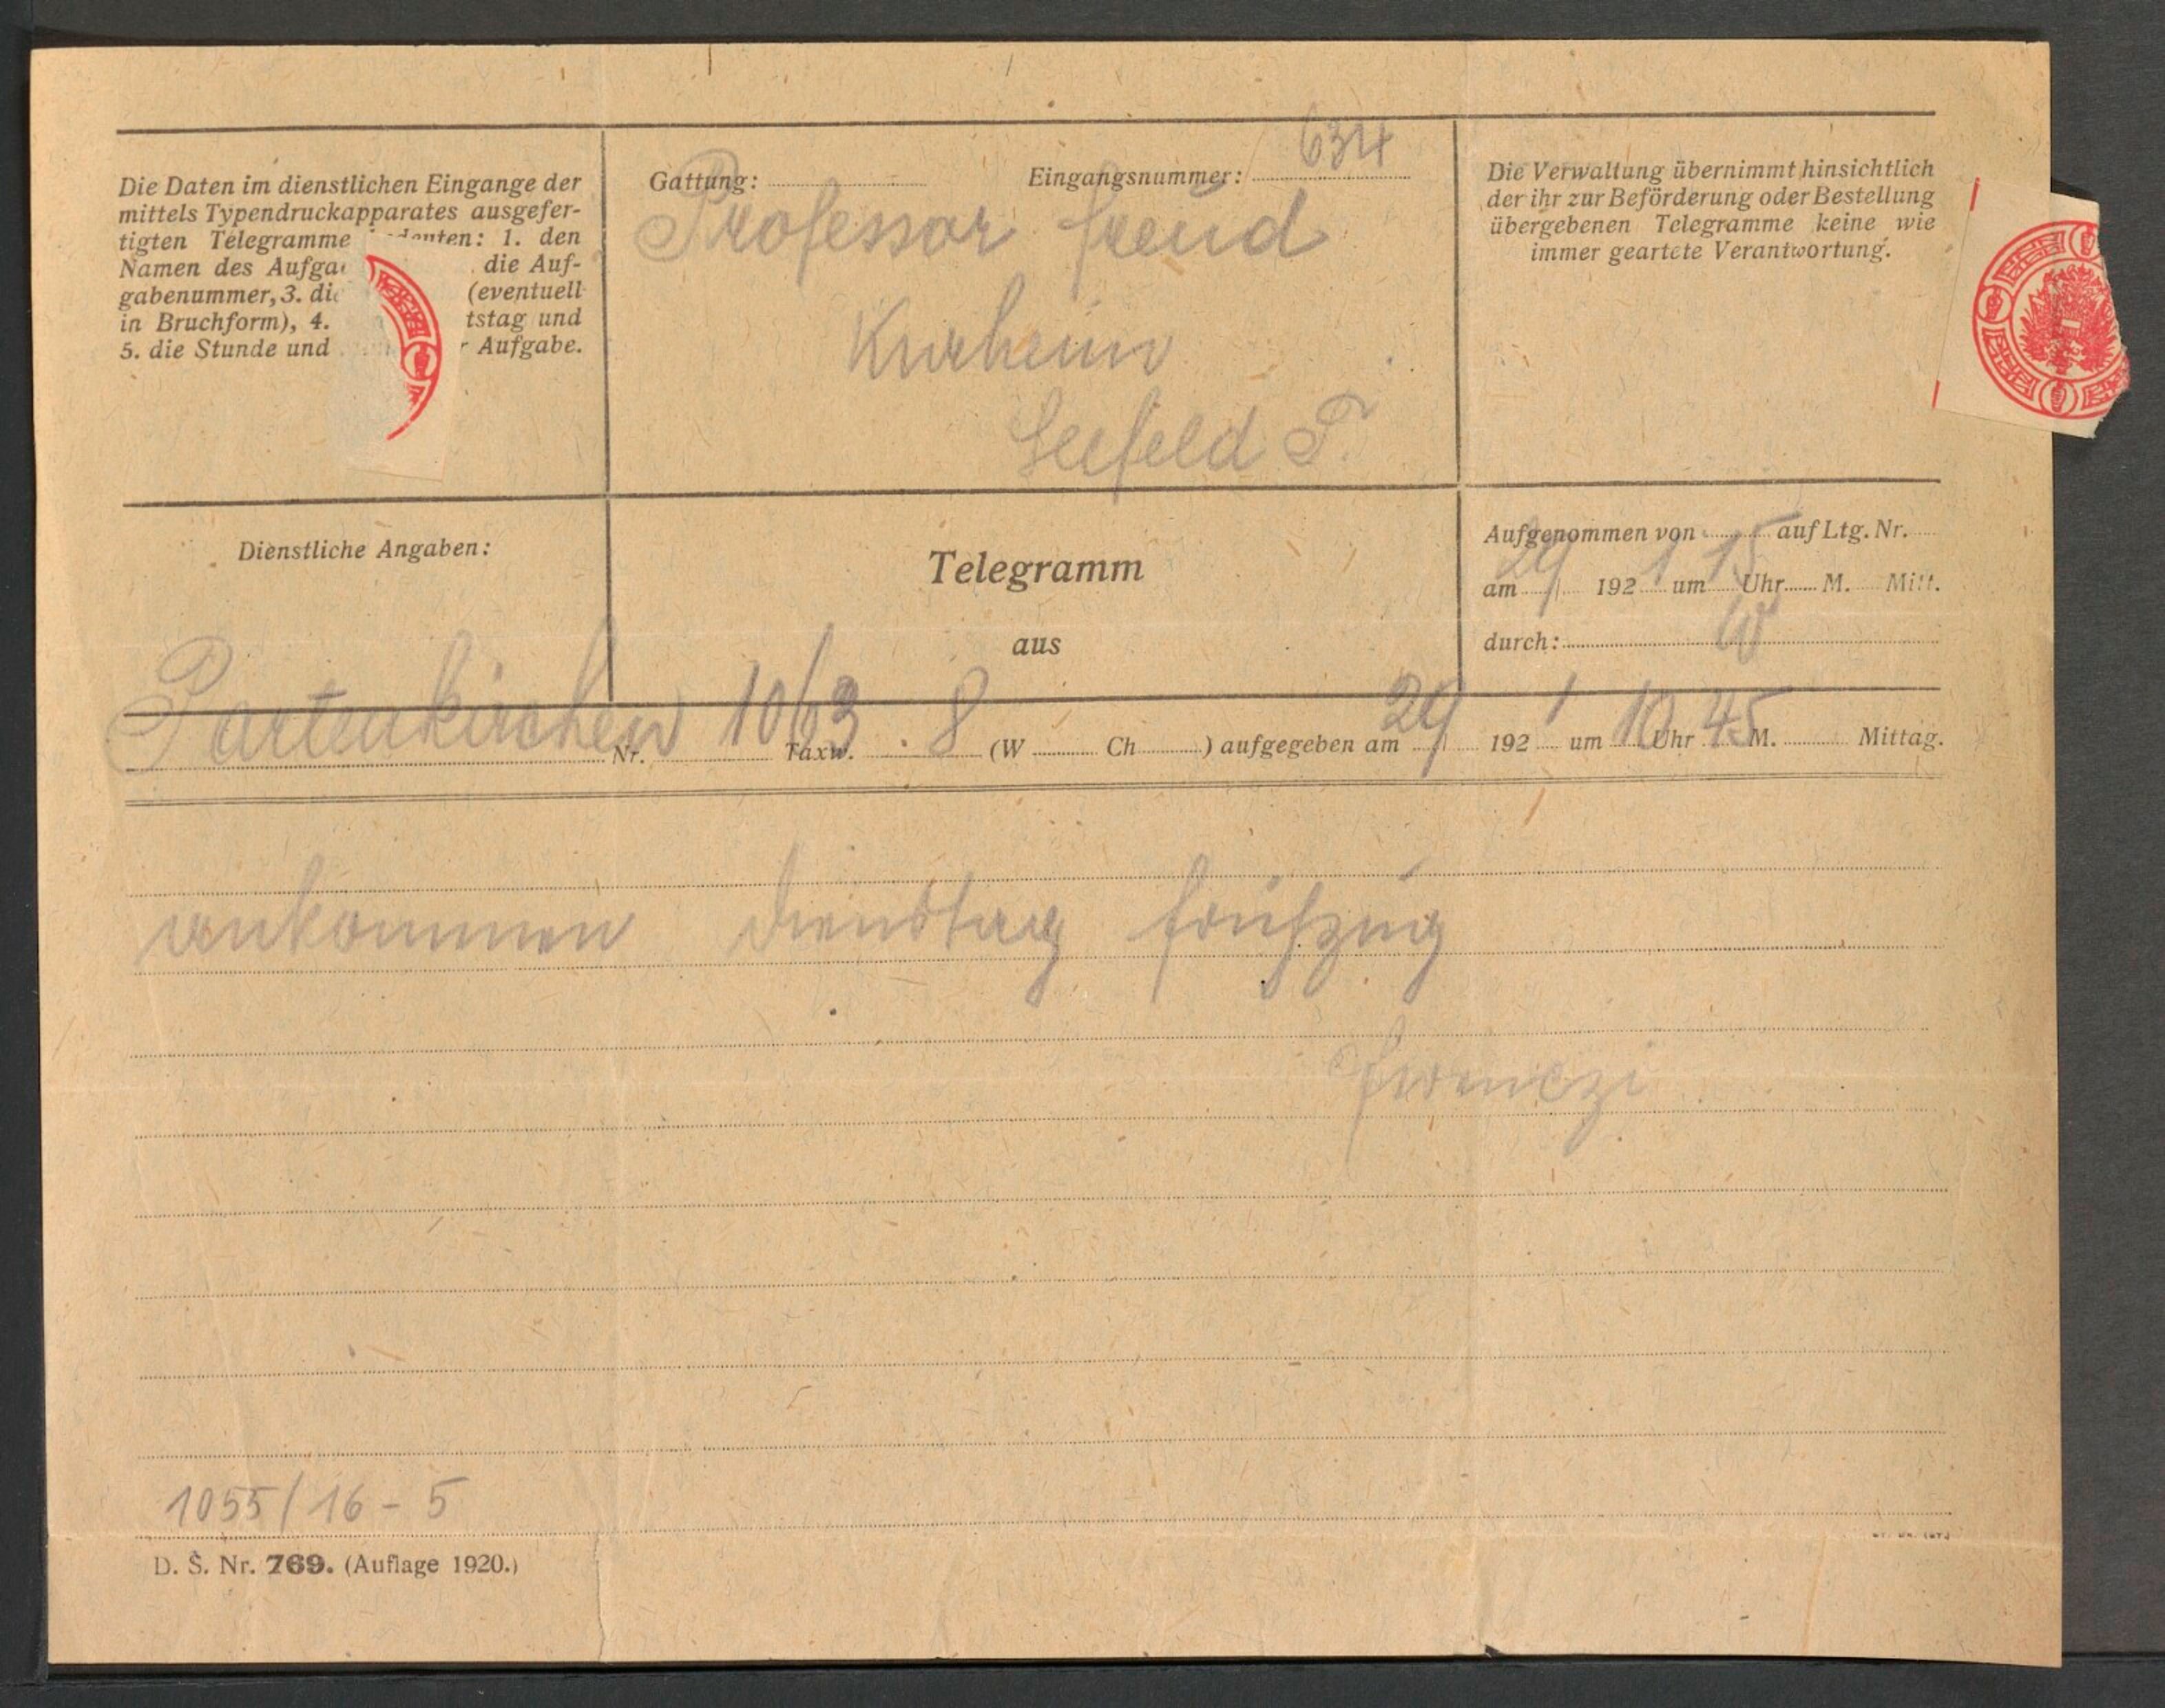 Die Daten im dienstlichen Eingange der
mittels Typendruckapparates ausgefer-
tigten Telegramme 1. den
Namen des die Auf-
gabenummer, 3. (eventuell
in Bruchform), 4. und
5. die Stunde und Aufgabe.
Gattung: Eingangsnummer: 634
Professor Freud
Kurheim
Seefeld T.
Die Verwaltung übernimmt hinsichtlich
der ihr zur Beförderung oder Bestellung
übergebenen Telegramme keine wie
immer geartete Verantwortung.
Dienstliche Angaben:
Telegramm
aus
Aufgenommen von auf Ltg. Nr.
am 192 um Uhr M. Mitt.
durch:
Partenkirchen Nr. Taxw. 8 (W Ch ) aufgegeben am 192 um 10 Uhr 45 M. Mittag.
ankommen dienstag frühzug
Ferenczi
1055/16-5
D. S. Nr. 769. (Auflage 1920.)